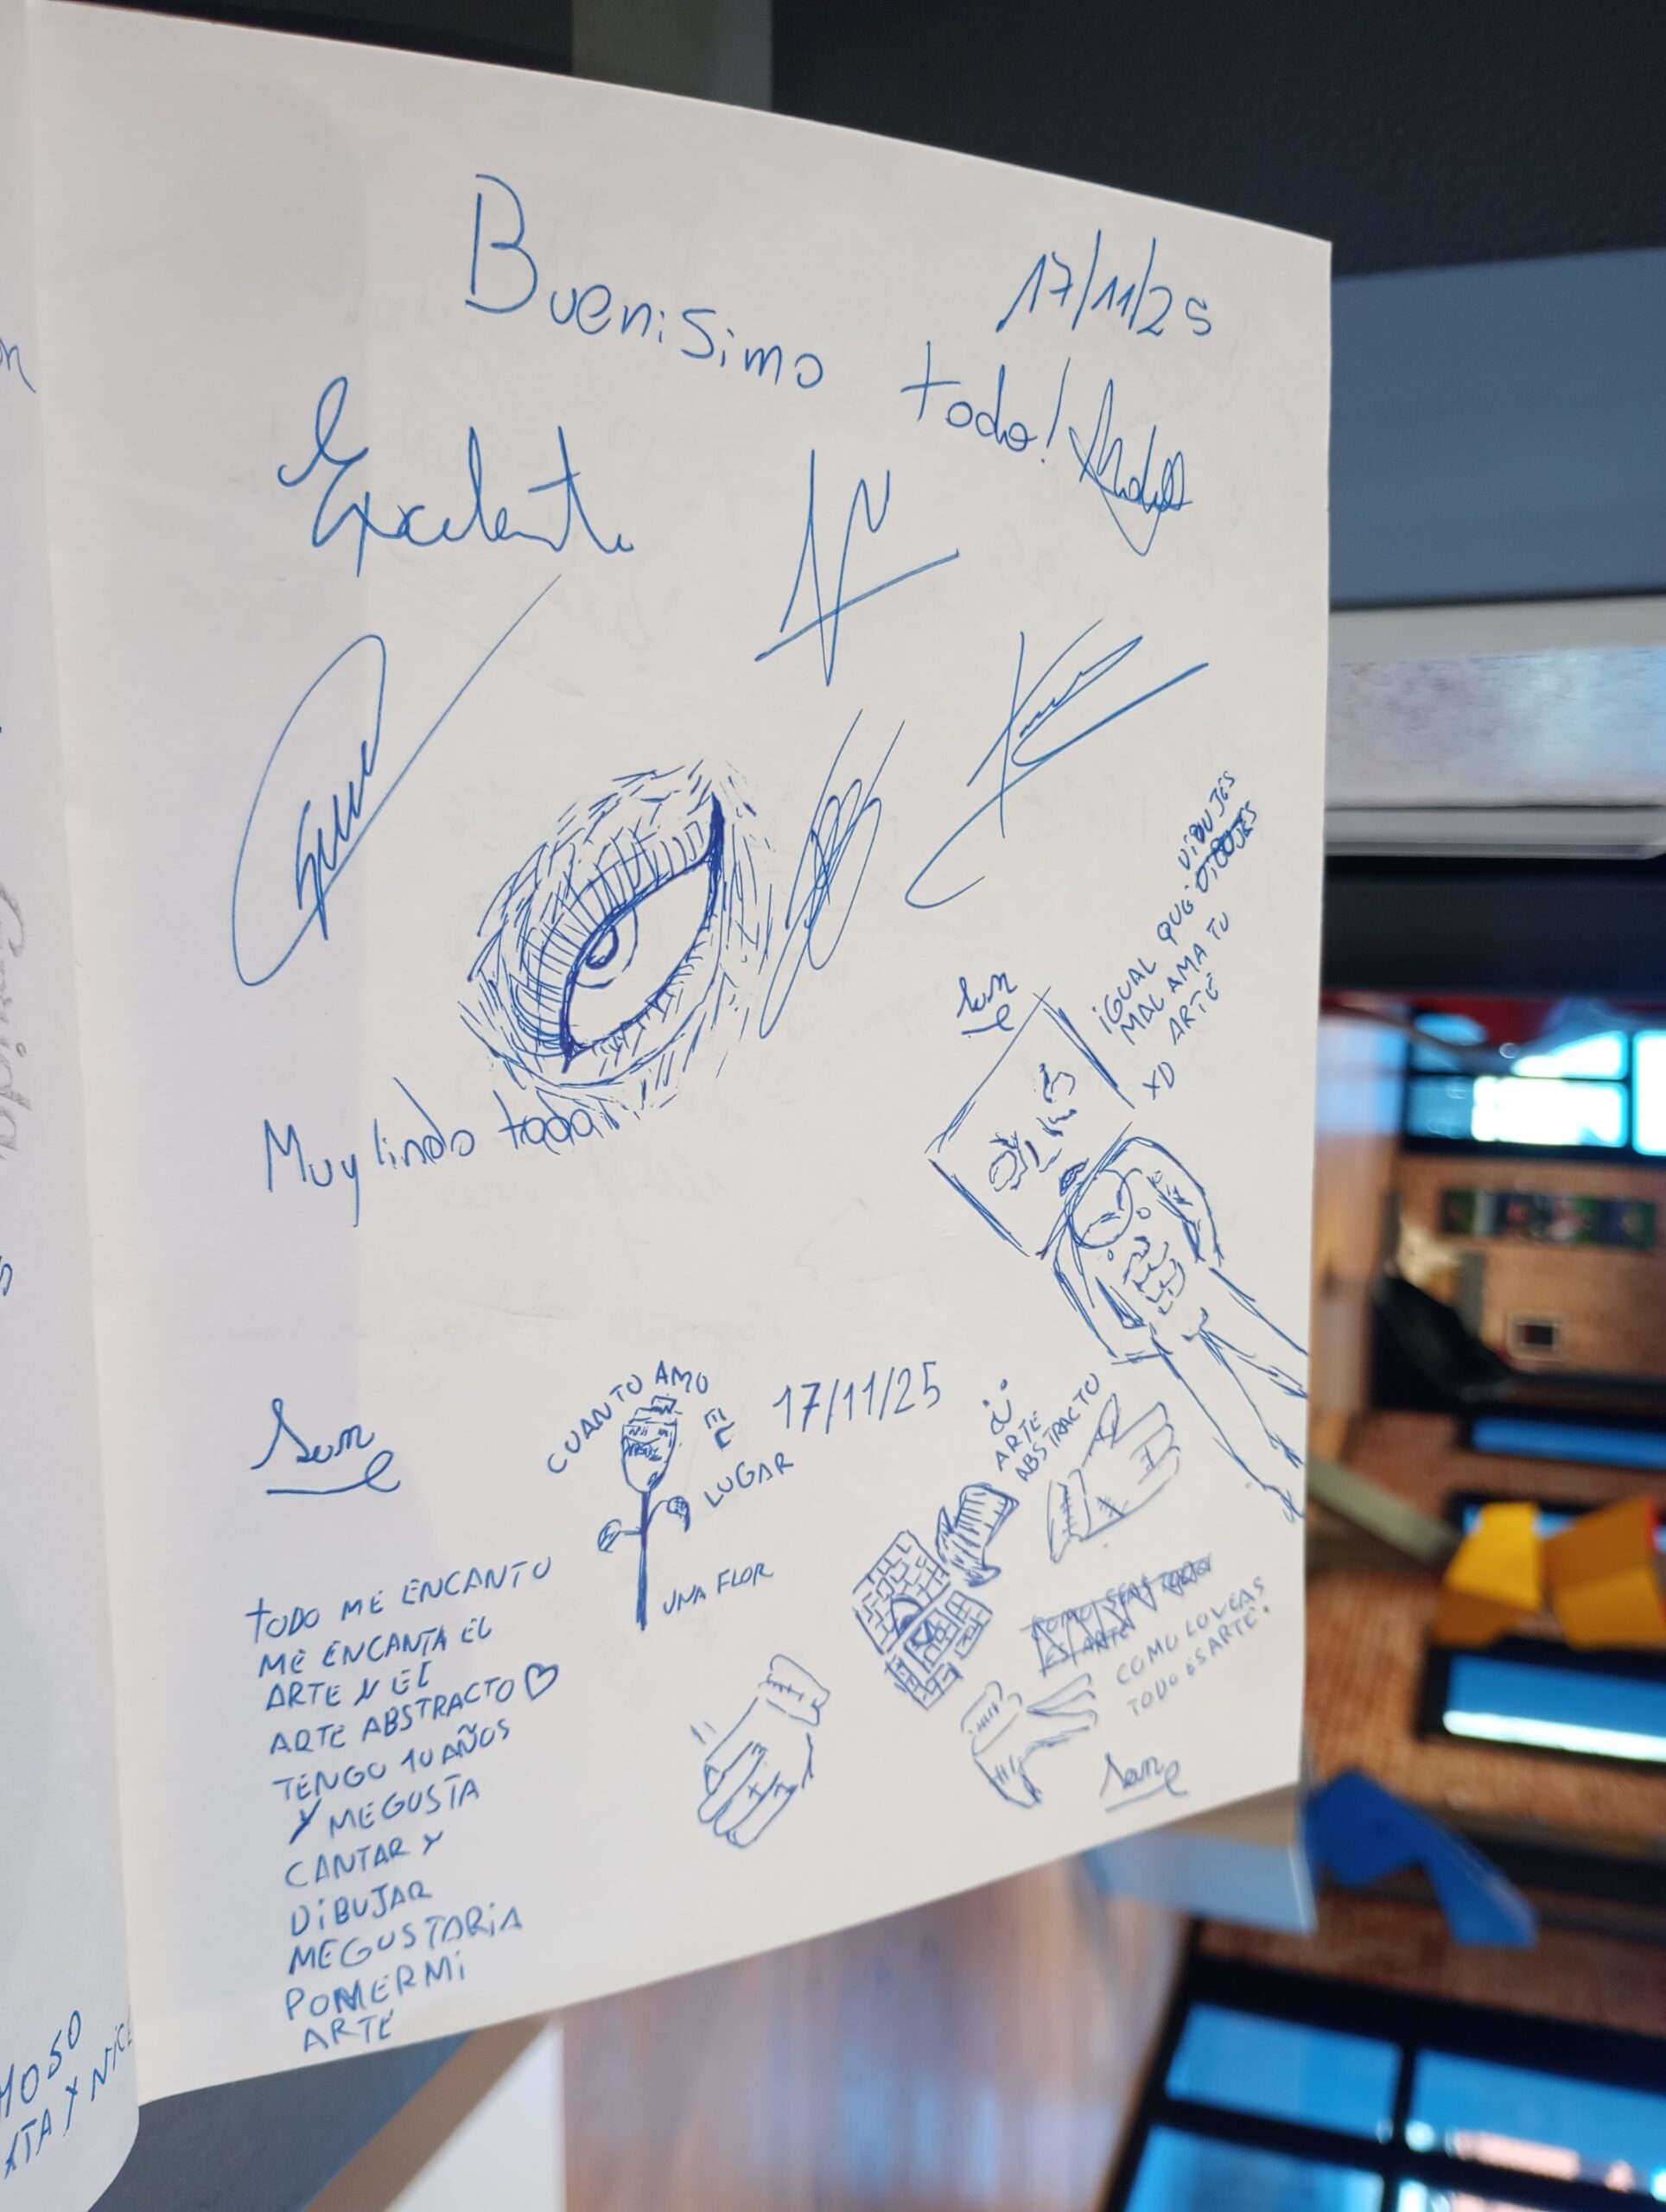 17/11/25
Buenisimo todo!
Excelente
Muy lindo todo!
Sam
IGUAL QUE DIBUJES
MAL AMA TU
ARTE
XD
Sam
CUANTO AMO
EL
LUGAR
17/11/25
UNA FLOR
ARTE
ABSTRACTO
COMO LO VEAS
TODO ES ARTE!
Sam
TODO ME ENCANTO
ME ENCANTA EL
ARTE Y EL
ARTE ABSTRACTO ♡
TENGO 10 AÑOS
Y ME GUSTA
CANTAR Y
DIBUJAR
ME GUSTARIA
PONER MI
ARTE